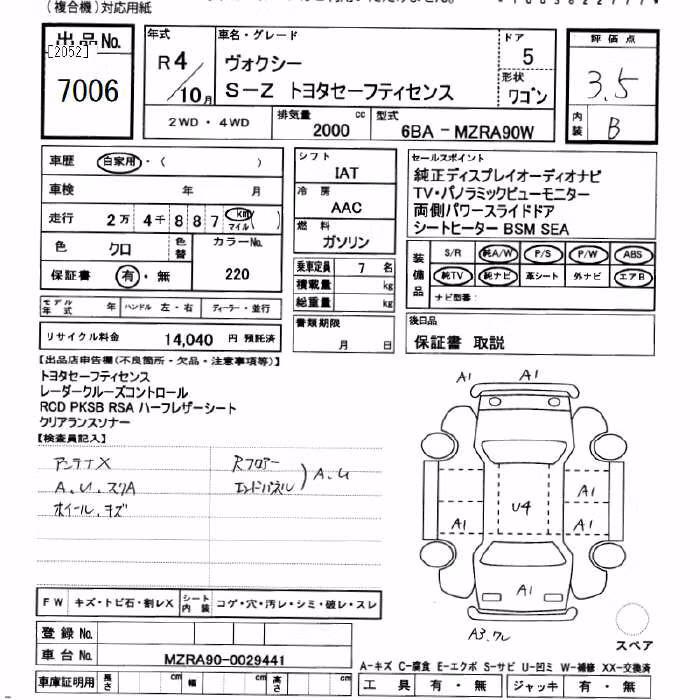 （複合機）対応用紙
出品No.
[2052]
7006
年式
R4/10月
車名・グレード
ヴォクシー
S－Z トヨタセーフティセンス
ドア
5
形状
ワゴン
評価点
3.5
内装
B
2WD・4WD
排気量
2000 cc
型式
6BA－MZRA90W
車歴
自家用・（ ）
車検 年 月
走行 2万 4千 8 8 7 km マイル
色
クロ
色替
カラーNo.
220
保証書 有・無
モデル年式 年
ハンドル 左・右
ディーラー・並行
リサイクル料金 14,040 円 預託済
シフト
IAT
冷房
AAC
燃料
ガソリン
乗車定員 7 名
積載量 kg
総重量 kg
書類期限
月 日
セールスポイント
純正ディスプレイオーディオナビ
TV・パノラミックビューモニター
両側パワースライドドア
シートヒーター BSM SEA
装備品
S/R 純A/W P/S P/W ABS
純TV 純ナビ 革シート 外ナビ エアB
ナビ型番：
後日品
保証書 取説
【出品店申告欄（不良箇所・欠品・注意事項等）】
トヨタセーフティセンス
レーダークルーズコントロール
RCD PKSB RSA ハーフレザーシート
クリアランスソナー
【検査員記入】
アンテナX
A、U、スリA
ホイール、キズ
Rフロアー
エンドパネル
) A、U
A1
A1
A1
A1
A1
U4
A1
A3、ワレ
スペア
FW キズ・トビ石・割レX
シート内装 コゲ・穴・汚レ・シミ・破レ・スレ
登録No.
車台No. MZRA90-0029441
車庫証明用 長さ cm 幅 cm 高さ cm
A－キズ C－腐食 E－エクボ S－サビ U－凹ミ W－補修 XX－交換済
工具 有・無 ジャッキ 有・無